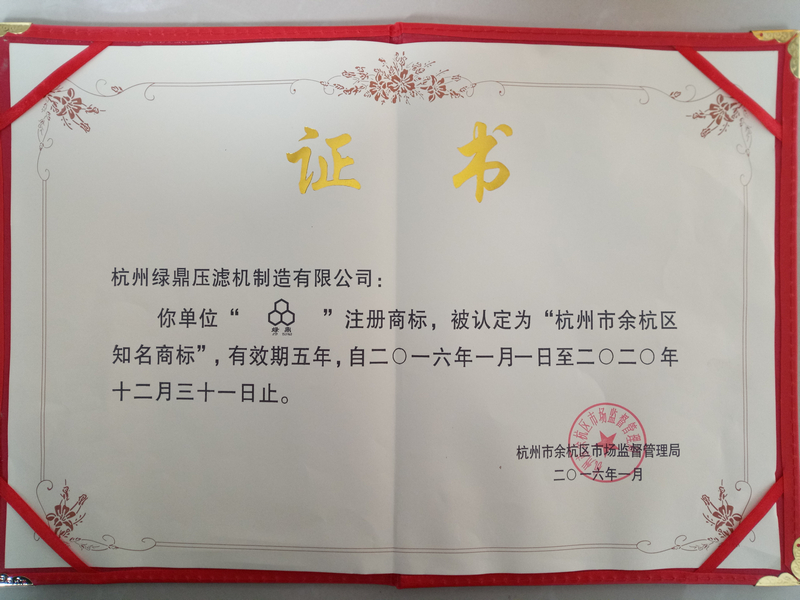 证书
杭州绿鼎压滤机制造有限公司：
你单位“绿鼎”注册商标，被认定为“杭州市余杭区
知名商标”，有效期五年，自二〇一六年一月一日至二〇二〇年
十二月三十一日止。
杭州市余杭区市场监督管理局
杭州市余杭区市场监督管理局
二〇一六年一月